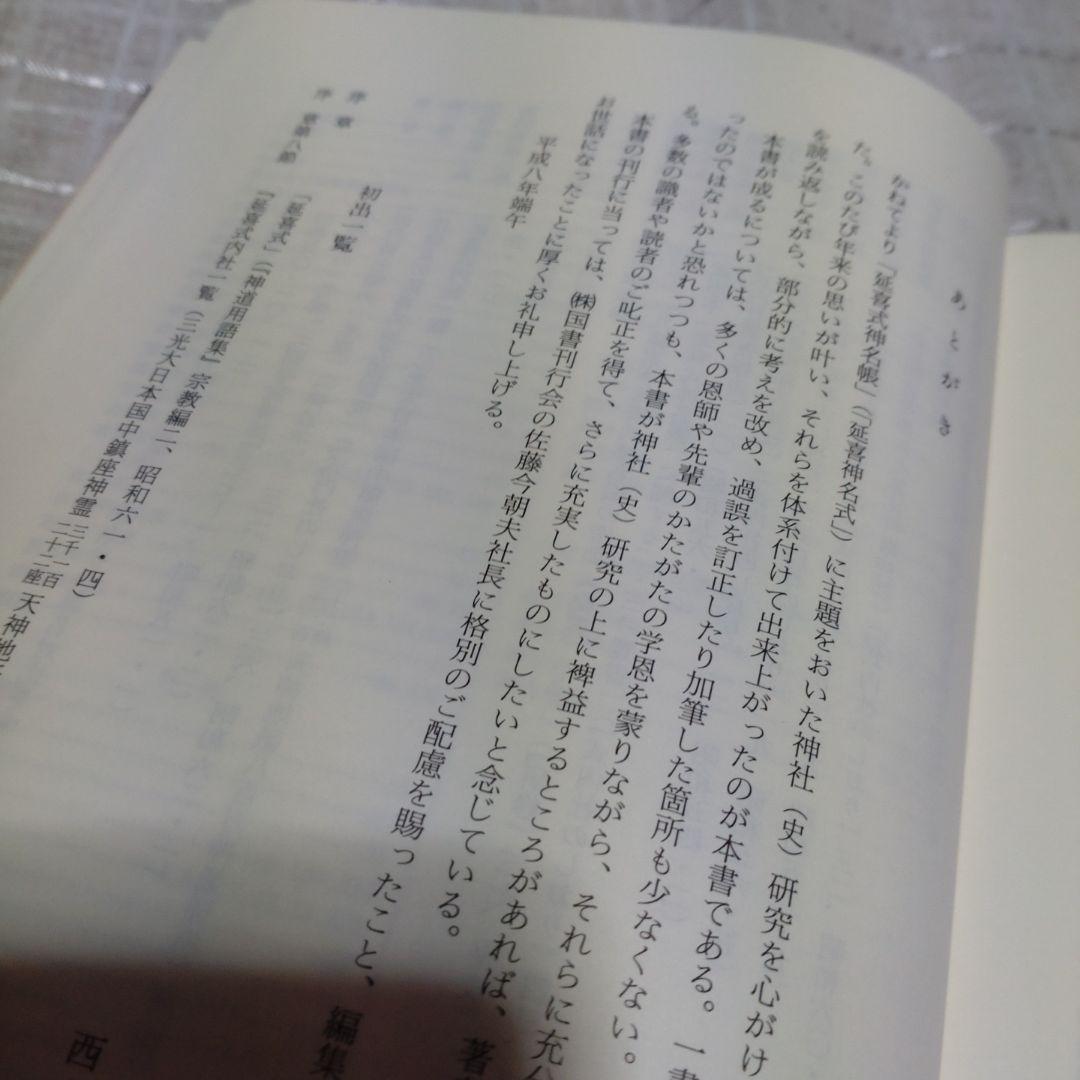 あとがき
かねてより「延喜式神名帳」(「延喜神名式」)に主題をおいた神社(史)研究を心がけ
た。このたび年来の思いが叶い、それらを体系付けて出来上がったのが本書である。一書
を読み返しながら、部分的に考えを改め、過誤を訂正したり加筆した箇所も少なくない。
本書が成るについては、多くの恩師や先輩のかたがたの学恩を蒙りながら、それらに充分
ったのではないかと恐れつつも、本書が神社(史)研究の上に裨益するところがあれば、著
る。多数の識者や読者のご叱正を得て、さらに充実したものにしたいと念じている。
本書の刊行に当っては、㈱国書刊行会の佐藤今朝夫社長に格別のご配慮を賜ったこと、編集
お世話になったことに厚くお礼申し上げる。
平成八年端午
西
初出一覧
序章
「延喜式」(『神道用語集』宗教編二、昭和六一・四)
序章第八節
『延喜式内社一覧(三光大日本国中鎮座神霊三千一百二十二座天神地